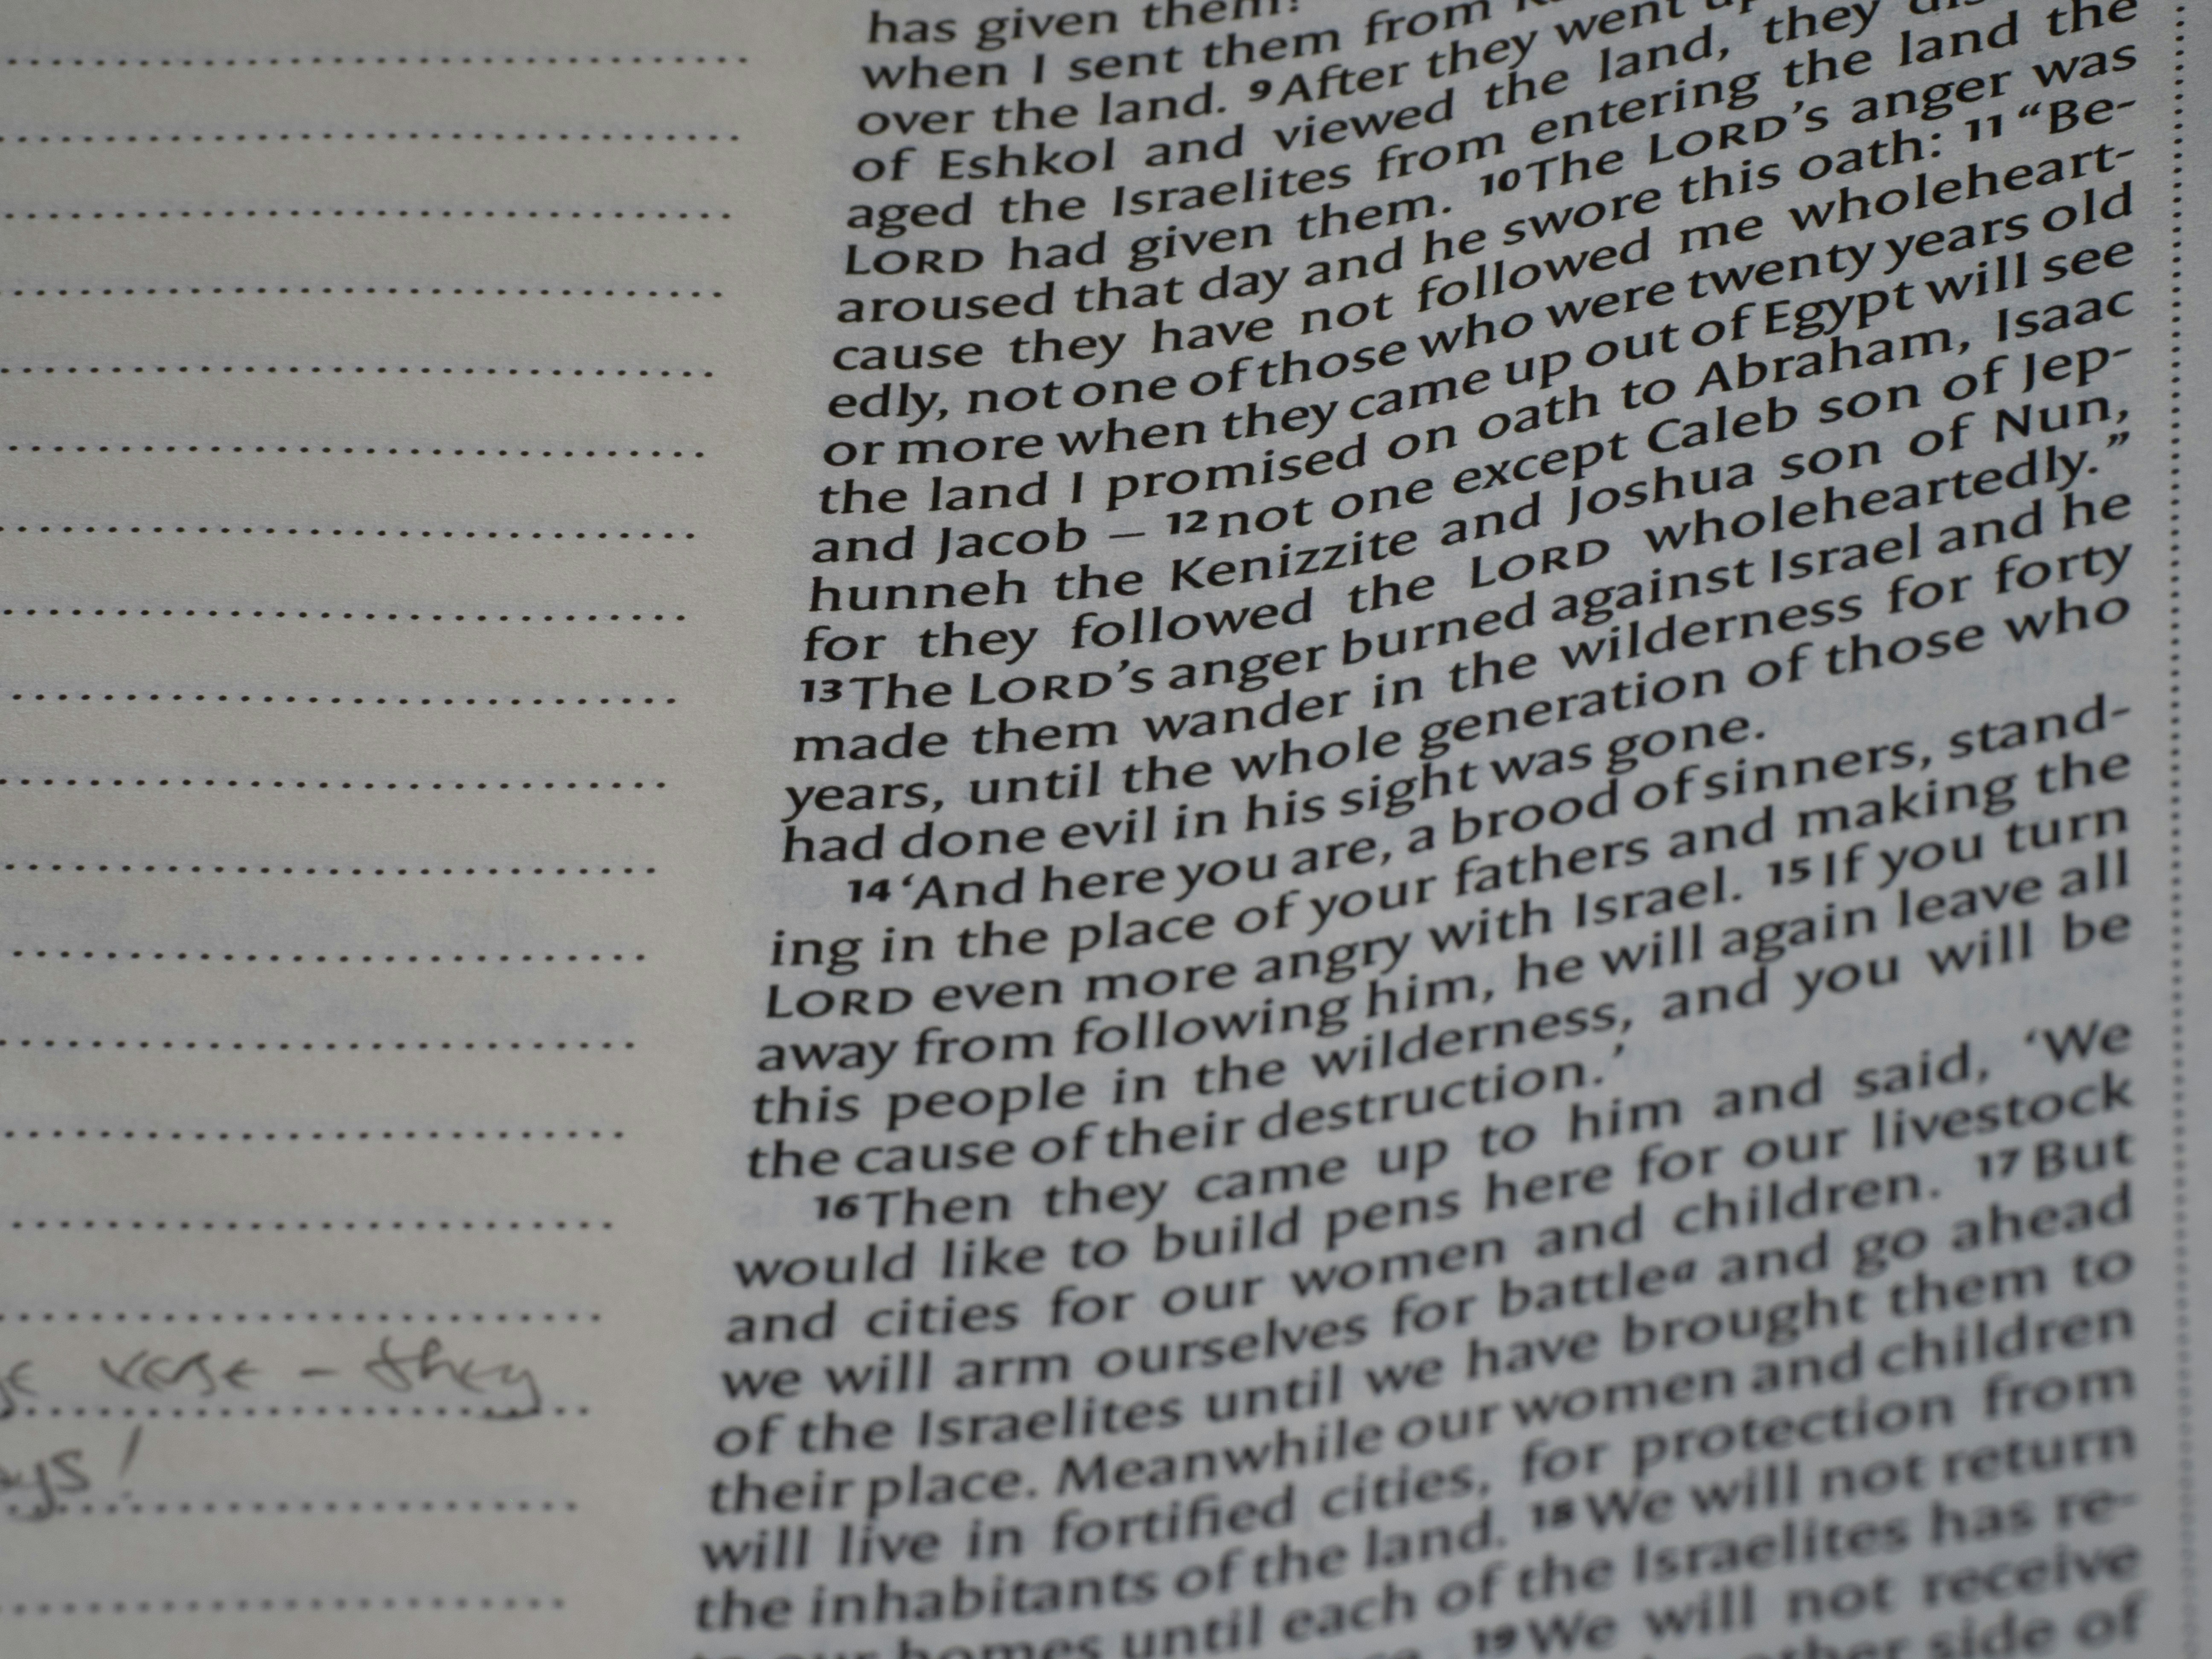 has given them?
when I sent them from
over the land. 9 After they went
of Eshkol and viewed the land, they
aged the Israelites from entering the land the
LORD had given them. 10 The LORD’S anger was
aroused that day and he swore this oath: 11 “Be-
cause they have not followed me wholeheart-
edly, not one of those who were twenty years old
or more when they came up out of Egypt will see
the land I promised on oath to Abraham, Isaac
and Jacob – 12 not one except Caleb son of Jep-
hunneh the Kenizzite and Joshua son of Nun,
for they followed the LORD wholeheartedly.”
13 The LORD’S anger burned against Israel and he
made them wander in the wilderness for forty
years, until the whole generation of those who
had done evil in his sight was gone.
14 ‘And here you are, a brood of sinners, stand-
ing in the place of your fathers and making the
LORD even more angry with Israel. 15 If you turn
away from following him, he will again leave all
this people in the wilderness, and you will be
the cause of their destruction.’
16 Then they came up to him and said, ‘We
would like to build pens here for our livestock
and cities for our women and children. 17 But
we will arm ourselves for battle a and go ahead
of the Israelites until we have brought them to
their place. Meanwhile our women and children
will live in fortified cities, for protection from
the inhabitants of the land. 18 We will not return
to our homes until each of the Israelites has re-
19 We will not receive
other side of
verse – they